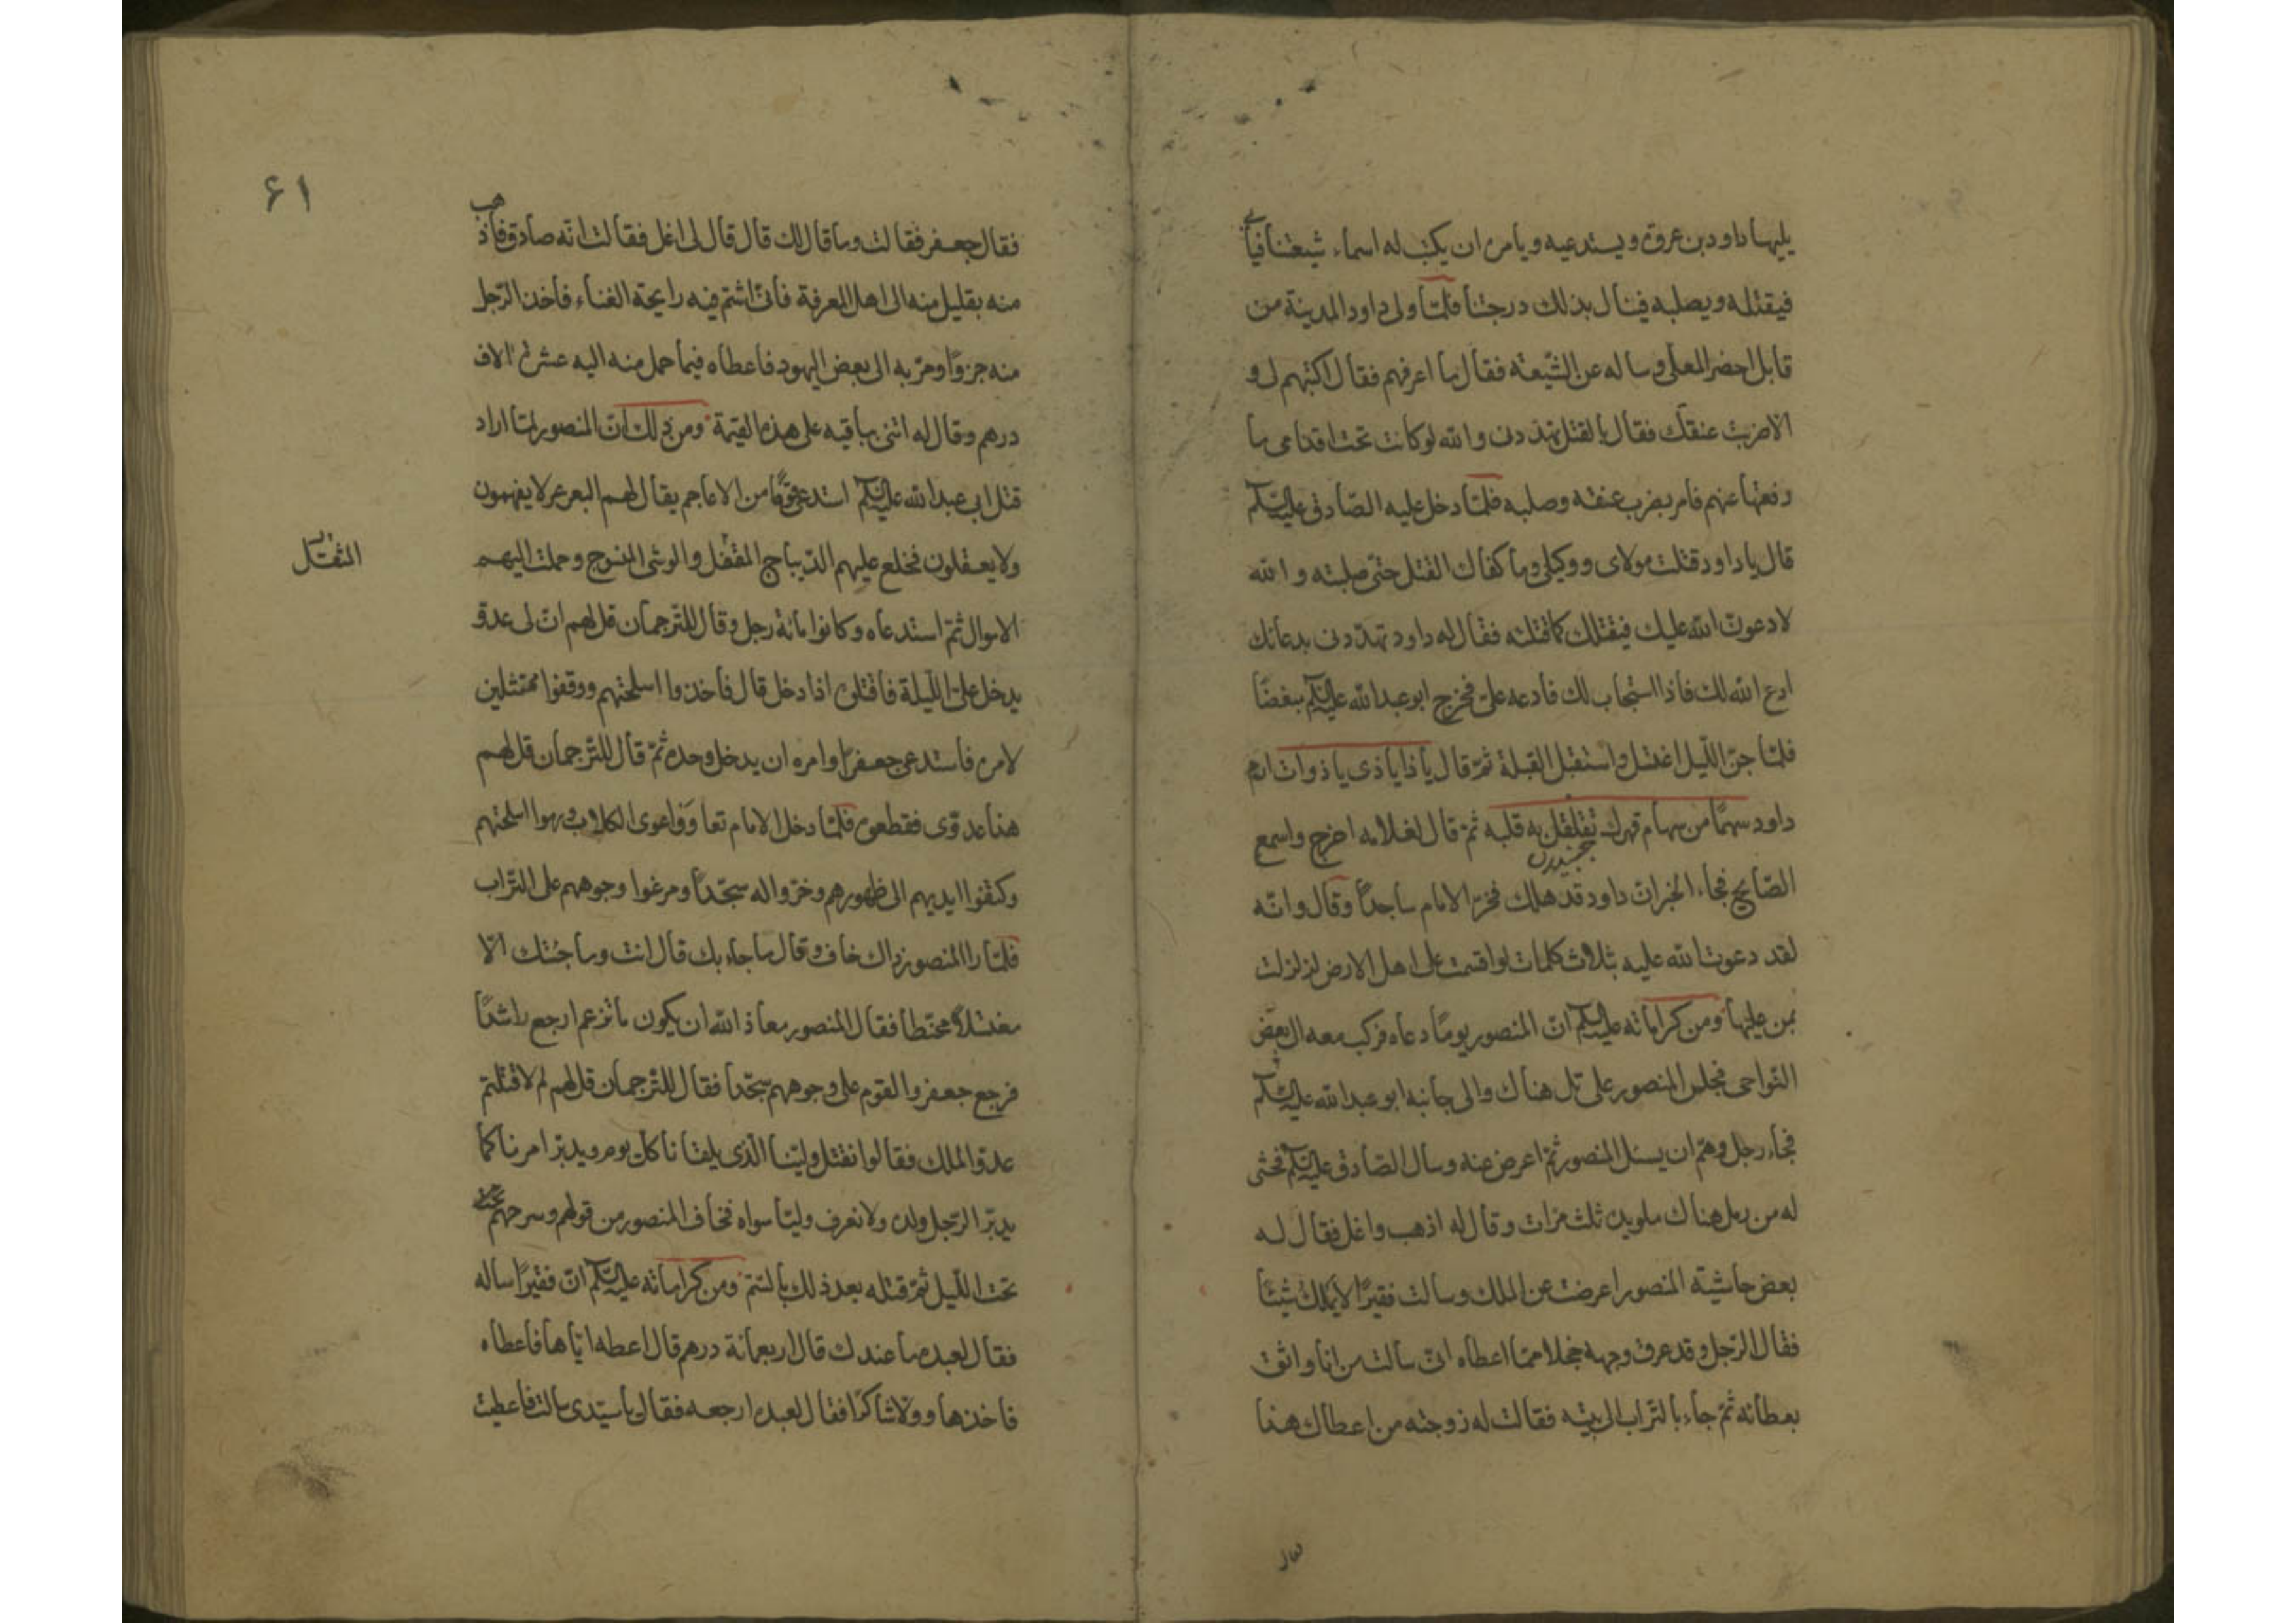 يليها داود بن عروة ويستدعيه ويامره ان يكتب له اسماء شيعتنا فيابى
فيقتله ويصلبه فينال بذلك درجتنا فلمّا ولى داود المدينة من
قابل احضر المعلى وساله عن الشّيعة فقال ما اعرفهم فقال اكتبهم لى و
الا ضربت عنقك فقال بالقتل تهددنى والله لو كانت تحت اقدامى ما
رفعتها عنهم فامر بضرب عنقه وصلبه فلمّا دخل عليه الصّادق عليه السّلم
قال يا داود قتلت مولاى ووكيلى وما كفاك القتل حتى صلبته والله
لادعونّ الله عليك فيقتلك كما قتلته فقال له داود تهدّدنى بدعائك
ادع الله لك فاذا استجاب لك فادعه علىّ فخرج ابو عبد الله عليه السّلم مغضبًا
فلمّا جنّ اللّيل اغتسل واستقبل القبلة ثمّ قال يا ذا يا ذى يا ذوات ارم
داود سهمًا من سهام قهرك تقلقل به قلبه ثمّ قال لغلامه اخرج واسمع
جنبيدن
الصّايح فجاء الخبر انّ داود قد هلك فخرّ الامام ساجدًا وقال وانّه
لقد دعوت الله عليه بثلاث كلمات لو اقسمت على اهل الارض لزلزلت
بمن عليها ومن كراماته عليه السّلم انّ المنصور يومًا دعاه فركب معه الى بعض
النّواحى فجلس المنصور على تل هناك والى جانبه ابو عبد الله عليه السّلم
فجاء رجل وهمّ ان يسئل المنصور ثمّ اعرض عنه وسال الصّادق عليه السّلم فحثى
له من رمل هناك ملو يده ثلث مرّات وقال له اذهب واغل فقال له
بعض حاشية المنصور اعرضت عن الملك وسالت فقيرًا لا يملك شيئًا
فقال الرّجل وقد عرق وجهه خجلا ممّا اعطاه انى سالت من انا واثق
بعطائه ثمّ جاء بالتّراب الى بيته فقالت له زوجته من اعطاك هذا
۶۱
فقال جعفر فقالت وما قال لك قال قال لى اغل فقالت انّه صادق فاذهب
منه بقليل منه الى اهل المعرفة فانّى اشتم فيه رايحة الغناء فاخذ الرّجل
منه جزوًا ومرّ به الى بعض اليهود فاعطاه فيما حمل منه اليه عشرة الاف
درهم وقال له ائتنى بباقيه على هذه القيمة ومن ذلك انّ المنصور لمّا اراد
قتل ابى عبد الله عليه السّلم استدعى قومًا من الاعاجم يقال لهم البعرعر لا يفهمون
ولا يعقلون فخلع عليهم الدّيباج المثقل والوشى المنسوج وحملت اليهم
المثقل
الاموال ثمّ استدعاه وكانوا مائة رجل وقال للتّرجمان قل لهم انّ لى عدوّ
يدخل علىّ اللّيلة فاقتلوه اذا دخل قال فاخذوا اسلحتهم ووقفوا ممتثلين
لامره فاستدعى جعفرًا وامره ان يدخل وحده ثمّ قال للتّرجمان قل لهم
هذا عدوّى فقطعوه فلمّا دخل الامام تعاووا عوى الكلاب ورموا اسلحتهم
وكتفوا ايديهم الى ظهورهم وخرّوا له سجّدًا ومرغوا وجوههم على التّراب
فلمّا راا المنصور ذاك خاف وقال ما جاء بك قال انت وما جئتك الّا
مغتسلًا محنّطا فقال المنصور معاذ الله ان يكون ما تزعم ارجع راشدًا
فرجع جعفر والقوم على وجوههم سجّدا فقال للتّرجمان قل لهم لم لا قتلتم
عدوّ الملك فقالوا نقتل وليّنا الّذى يلقانا كل يوم ويدبّر امرنا كما
يدبّر الرّجل ولده ولا نعرف وليّا سواه فخاف المنصور من قولهم وسرحهم
تحت اللّيل ثمّ قتله بعد ذلك بالسّم ومن كراماته عليه السّلم انّ فقيرًا ساله
فقال لعبده ما عندك قال اربعمائة درهم قال اعطه ايّاها فاعطاه
فاخذها وولّا شاكرًا فقال لعبده ارجعه فقال يا سيّدى سالت فاعطيت